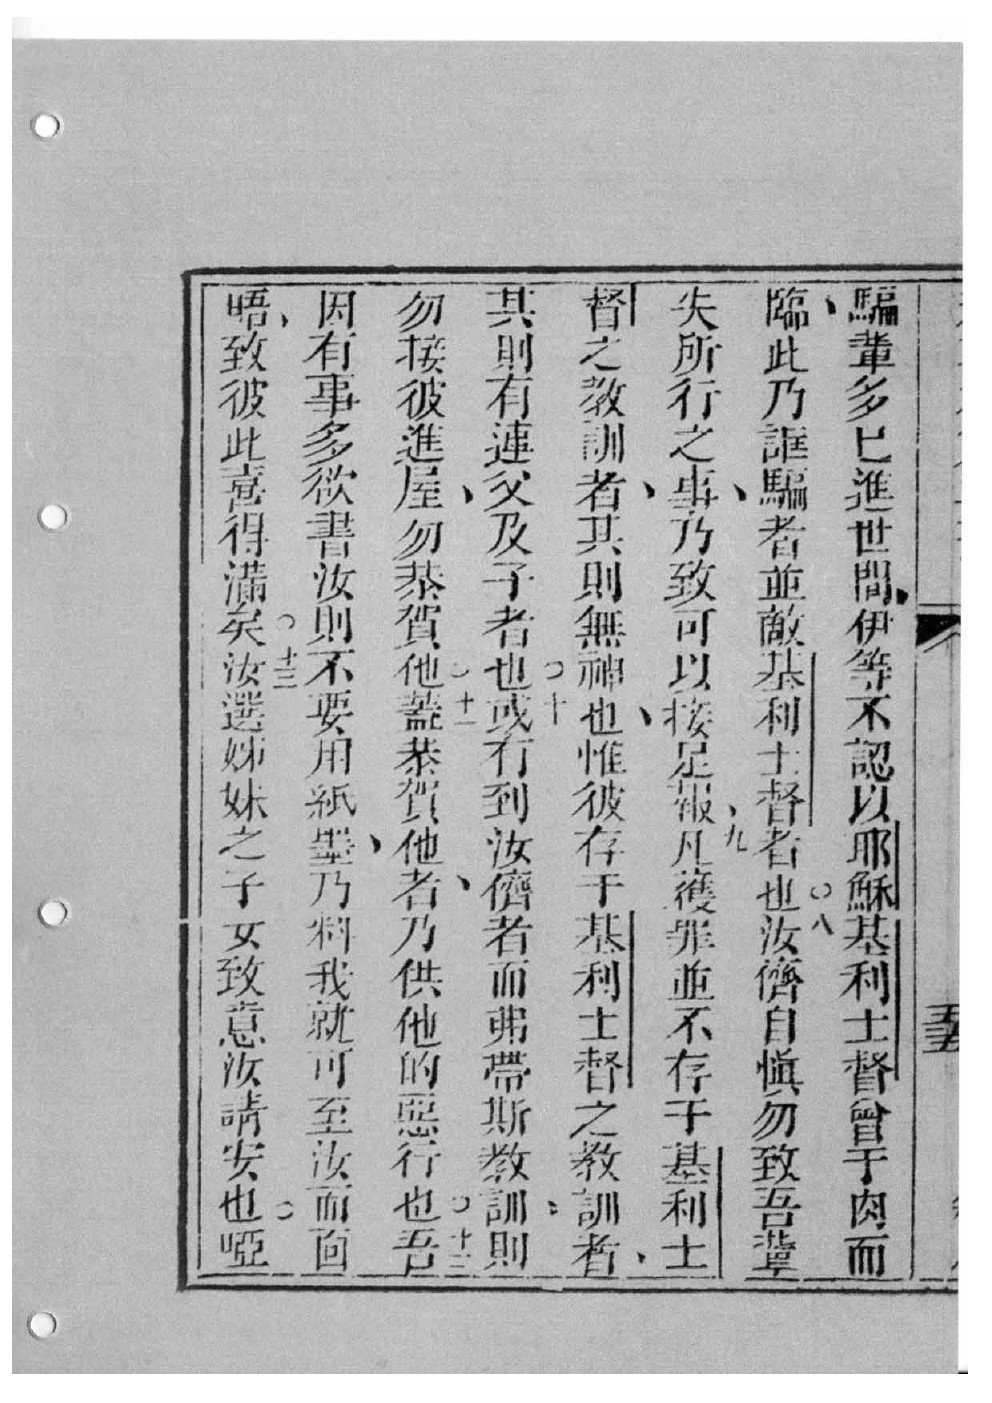 騙輩多已進世間伊等不認以耶穌基利士督曾于肉而
臨此乃誆騙者並敵基利士督者也○八汝儕自慎勿致吾輩
失所行之事乃致可以接足報九凡獲罪並不存于基利士
督之教訓者其則無神也惟彼存于基利士督之教訓者
其則有連父及子者也○十或有到汝儕者而弗帶斯教訓則
勿接彼進屋勿恭賀他○十一蓋恭賀他者乃供他的惡行也○十二吾
因有事多欲書汝則不要用紙墨乃料我就可至汝而面
晤致彼此喜得滿矣○十三汝選姊妹之子女致意汝請安也○啞
五五